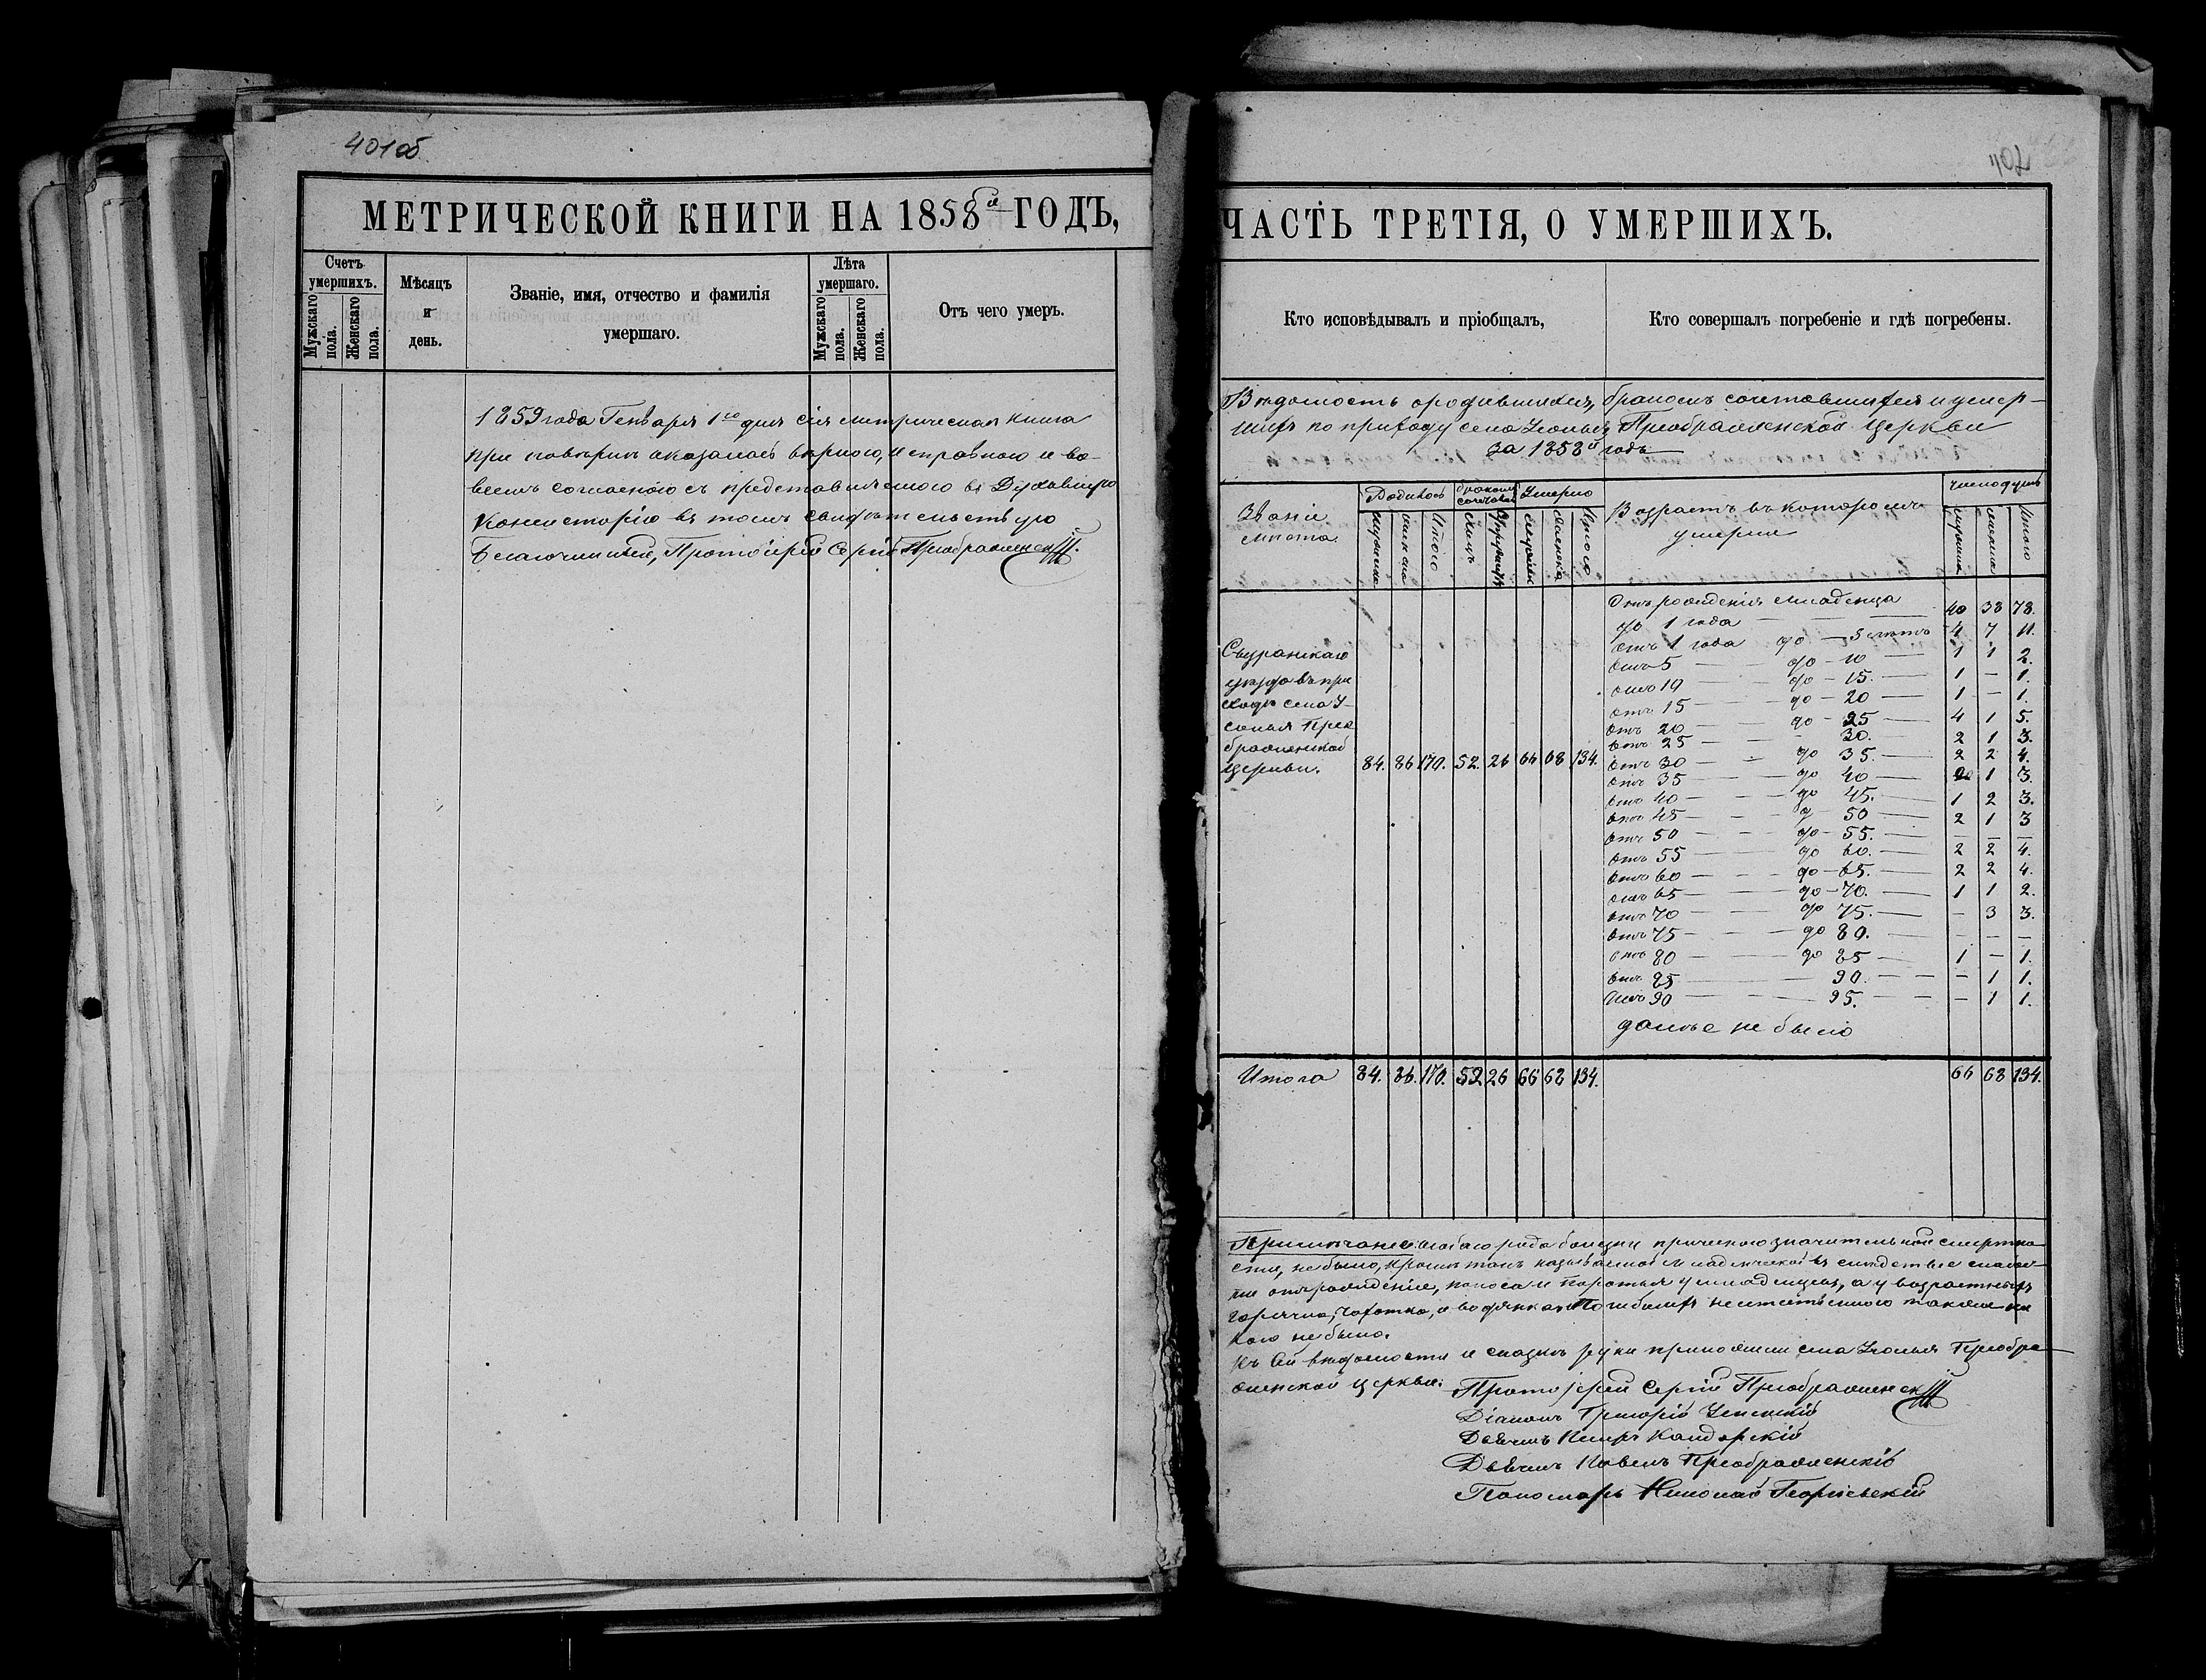 401об
МЕТРИЧЕСКОЙ КНИГИ НА 1858й ГОДЪ,
Счетъ умершихъ.
Мужскаго пола.
Женскаго пола.
Мѣсяцъ и день.
Званіе, имя, отчество и фамилія умершаго.
Лѣта умершаго.
Мужскаго пола.
Женскаго пола.
Отъ чего умеръ.
1859 года Генваря 1го дня сія метрическая книга
при повѣрки оказалась вѣрною, исправною и во-
всемъ согласною съ представляемою въ Духовную
Консисторію въ томъ свидѣтельствую
Благочинный, Протоіерей Сергій Преображенскій.
402
ЧАСТЬ ТРЕТІЯ, О УМЕРШИХЪ.
Кто исповѣдывалъ и пріобщалъ,
Кто совершалъ погребеніе и гдѣ погребены.
Вѣдомость о родившихся, бракомъ сочетавшихся и умер-
шихъ по приходу села Усолья Преображенской Церкви
за 1858й годъ
Званіе мѣста
Родилось
бракомъ сочетав
Умерло
Возрастъ въ которомъ умерли
число душъ
мужеска
женска
Итого
Лицъ
Супружествъ
мужеска
женска
Итого
мужеска
женска
Итого
Отъ рожденія младенца
до 1 года — 40 38 78.
Отъ 1 года до — 5 лѣтъ 4 7 11.
Отъ 5 — до — 10 — 1 1 2.
Отъ 10 — до — 15. — 1 — 1.
Отъ 15 — до — 20 — 1 — 1.
Отъ 20 — до — 25 — 4 1 5.
Отъ 25 — 30. — 2 1 3.
Отъ 30 — до 35. — 2 2 4.
Отъ 35 — до 40 — 2 1 3.
Отъ 40 — до 45. — 1 2 3.
Отъ 45 — до 50 — 2 1 3
Отъ 50 — до — 55. — — — —
Отъ 55 — до 60. — 2 2 4.
Отъ 60 — до — 65. — 2 2 4.
Отъ 65 — до — 70. — 1 1 2.
Отъ 70 — до 75. — — 3 3.
Отъ 75 — до 80. — — — —
Отъ 80 — до 85 — 1 — 1.
Отъ 85 — 90. — — 1 1.
Отъ 90 — 95. — — 1 1.
далѣе не было
Сызранскаго
уѣзда въ при
ходѣ села У-
солья Прео
браженской
Церкви. 84. 86 170. 52. 26 66 68 134.
Итого 84. 86. 170. 52 26 66 68 134. 66 68 134.
Примѣчаніе: особаго рода болѣзни причиною значительной смертно
сти, не было, кромѣ такъ называемой младенческой въ слѣдствіе слабос
ти отъ рожденія, поноса и коротья у младенцевъ, а у возрастныхъ
горячка, чахотка, и водянка. Погибшихъ неестественно также ни
кого не было.
Къ сей вѣдомости и сказкѣ руки приложили села Усолья Преобра
женской церкви: Протоіерей Сергій Преображенскій
Діаконъ Григорій Успенскій
Дьячекъ Петръ
Дьячекъ Павелъ Преображенскій
Пономарь Николай Георгіевскій